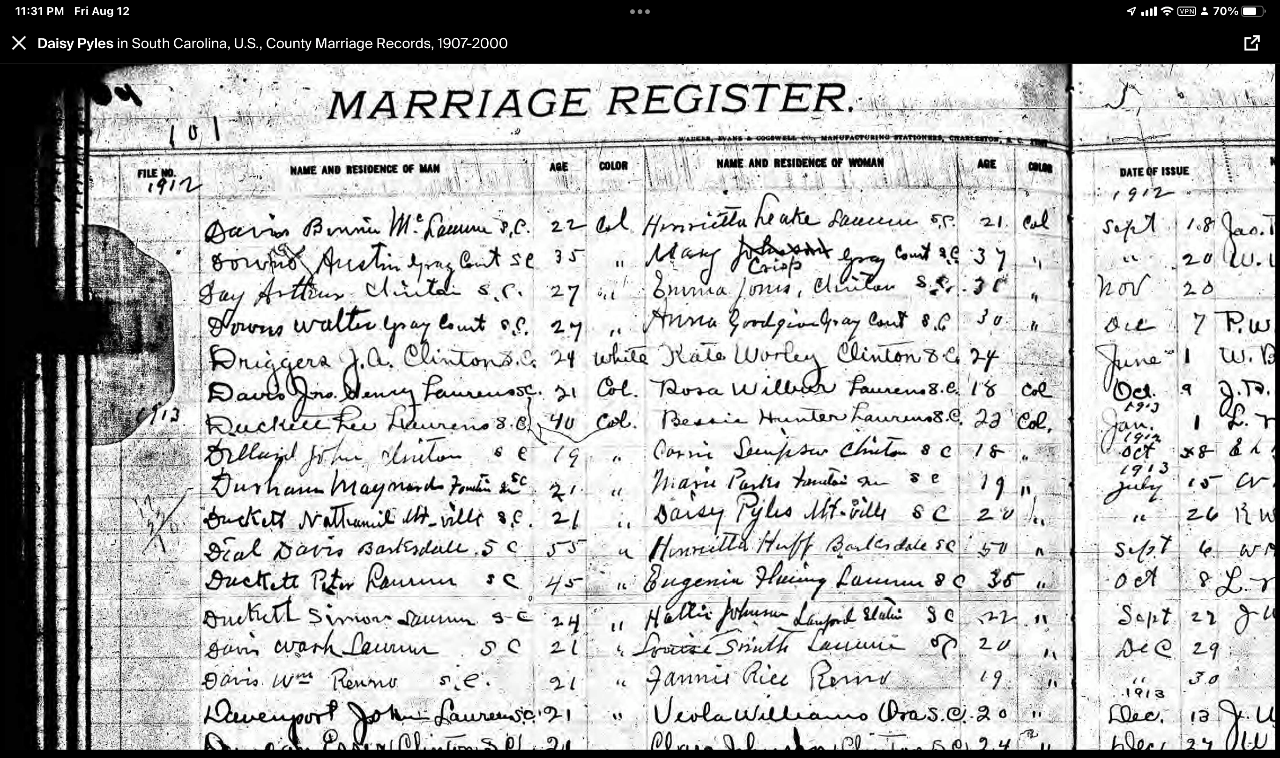 11:31 PM Fri Aug 12
VPN 70%
Daisy Pyles in South Carolina, U.S., County Marriage Records, 1907-2000
MARRIAGE REGISTER.
101
WALKER, EVANS & COGSWELL CO., MANUFACTURING STATIONERS, CHARLESTON, S. C.
FILE NO. NAME AND RESIDENCE OF MAN AGE COLOR NAME AND RESIDENCE OF WOMAN AGE COLOR DATE OF ISSUE
1912 1912
Davis Bennie Mc Laurens S.C. 22 Col Henrietta Leake Laurens S.C. 21 Col Sept 18 Jas.
Downs Austin Gray Court S C 35 " Mary Johnson Crisp Gray Court S.C. 37 " " 20 W.
Day Arthur Clinton S.C. 27 " Emma Jones, Clinton S.C. " Nov 20
Downs Walter Gray Court S.C. 27 " Anna Goodgion Gray Court S.C. 30 " Dec 7 P.W
Driggers J.A. Clinton S.C. 24 White Kate Worley Clinton S.C. 24 June 1 W.
Davis Jno. Henry Laurens S.C. 21 Col. Rosa Wilbur Laurens S.C. 18 Col Oct. 9 J.
1913 Duckett Lee Laurens S.C. 40 Col. Bessie Hunter Laurens S.C. 23 Col. 1913 Jan. 1 L.
Dillard John Clinton S C 19 " Carrie Simpson Clinton S C 18 " 1912 Oct 28
Durham Maynard Fountain Inn SC 21 " Marie Parks Fountain Inn S C 19 " 1913 July 15 W.
Duckett Nathaniel Mt-ville S.C. 21 " Daisy Pyles Mt-ville S C 20 " " 26 R W
Dial Davis Barksdale. S C 55 " Henrietta Huff Barksdale S C 50 " Sept 6
Duckett Peter Laurens S C 45 " Eugenia Fleming Laurens S C 35 " Oct 8 L.
Duckett Simon Laurens S C 24 " Hattie Johnson Lanford Station S C 22 " Sept 22 J
Davis Wash Laurens S C 21 " Louise Smith Laurens 20 " Dec 29
Davis Wm Renno S.C. 21 " Fannie Rice Renno 19 " " 30
Davenport John Laurens S.C. 21 " Veola Williams Ora S.C. 20 " 1913 Dec. 13 J.
Clinton S C 24 " Dec. 27